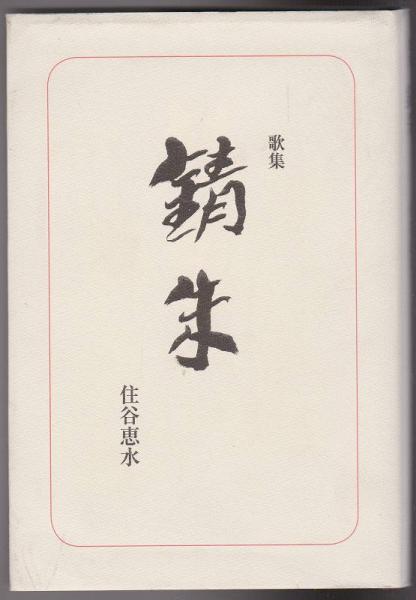 歌集
錆朱
住谷恵水